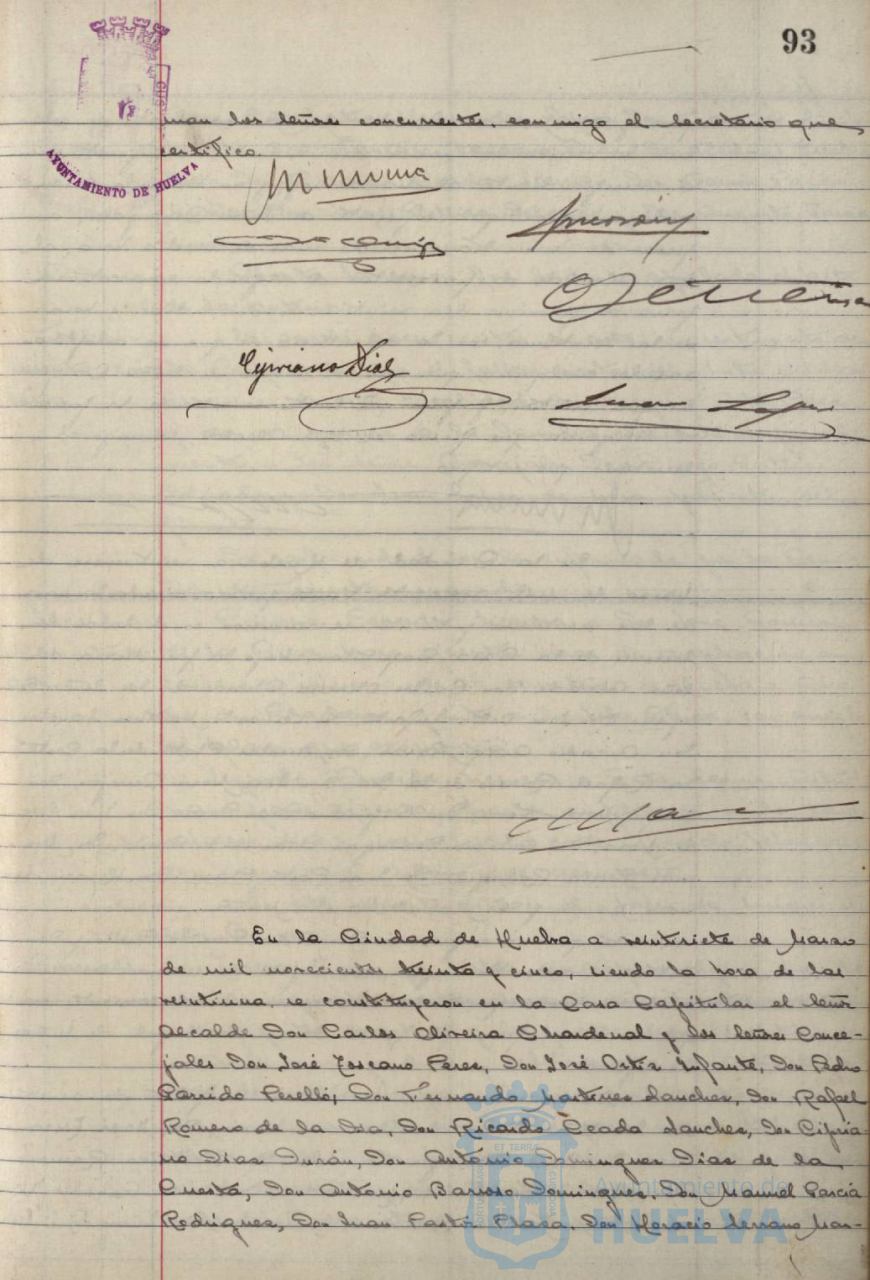 93
AYUNTAMIENTO DE HUELVA
man los señores concurrentes, conmigo el secretario que
certifico.
Cipriano Diaz
En la Ciudad de Huelva a veintisiete de Marzo
de mil novecientos treinta y cinco, siendo la hora de las
veintiuna, se constituyeron en la Casa Capitular el señor
Alcalde Don Carlos Oliveira Chardenal y los señores Conce-
jales Don José Toscano Perez, Don José Ortiz Infante, Don Pedro
Garrido Perelló, Don Fernando Martinez Sanchez, Don Rafael
Romero de la Isa, Don Ricardo Terrades Sanchez, Don Cipria-
no Diaz Durán, Don Antonio Dominguez Diaz de la
Cuesta, Don Antonio Barroso Dominguez, Don Manuel García
Rodriguez, Don Juan Pastor Plaza, Don Horacio Serrano Mar-
Ayuntamiento de
HUELVA